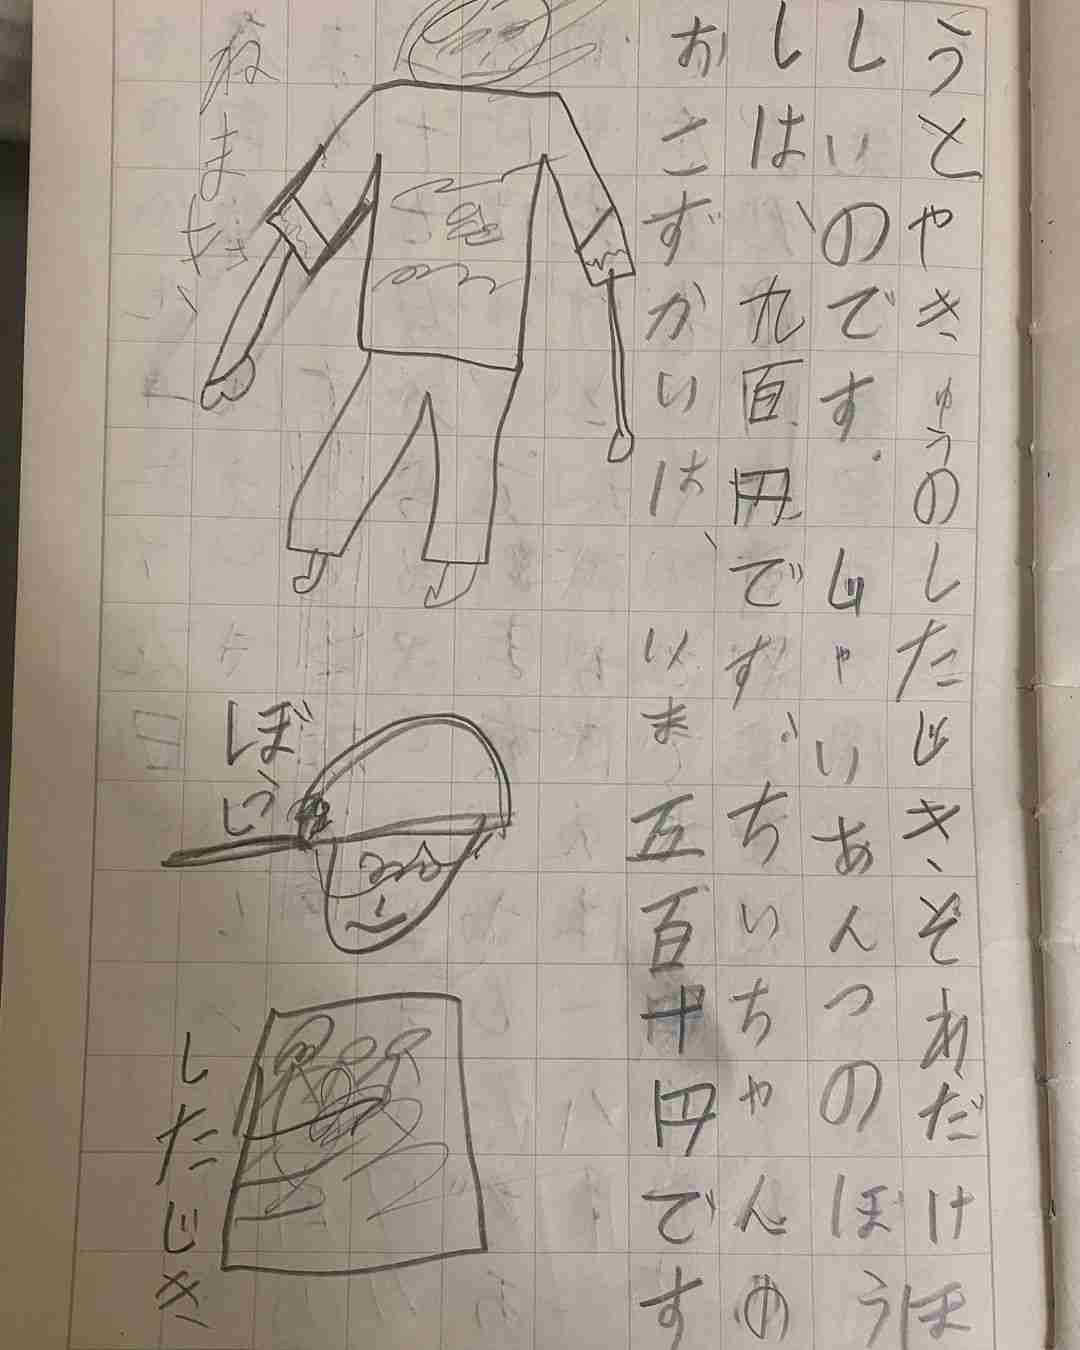 うとやきゅうのしたじき、それだけほ
しいのです。じゃいあんつのぼう
しは、九百円です。ちいちゃんの
おこずかいは、いま五百十円です
ねまき
ぼうし
したじき